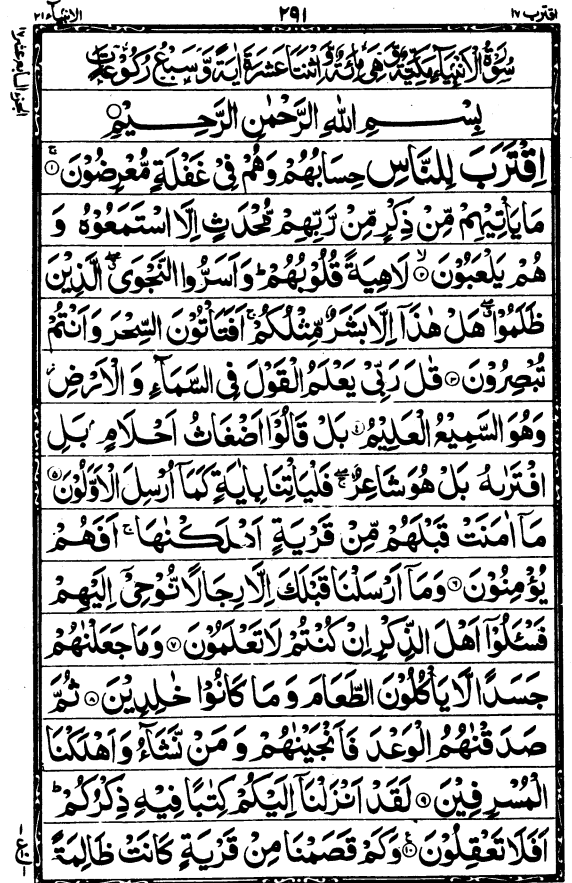 اقترب ١٧
٢٩١
الانبيآء ٢١
الجزء السابع عشر ١٧
سُوْرَةُ الْاَنْۢبِيَآءِ مَكِّيَّةٌ وَّهِىَ مِائَةٌ وَّاثْنَتَا عَشَرَةَ اٰيَةً وَّسَبْعُ رُكُوْعَاتٍ
بِسْــــمِ اللهِ الرَّحْمٰنِ الرَّحِـــيْمِ ۝
اِقْتَرَبَ لِلنَّاسِ حِسَابُهُمْ وَهُمْ فِىْ غَفْلَةٍ مُّعْرِضُوْنَ ۝١
مَا يَاْتِيْهِمْ مِّنْ ذِكْرٍ مِّنْ رَّبِّهِمْ مُّحْدَثٍ اِلَّا اسْتَمَعُوْهُ وَ
هُمْ يَلْعَبُوْنَ ۝٢ لَاهِيَةً قُلُوْبُهُمْ ؕ وَاَسَرُّوا النَّجْوَى الَّذِيْنَ
ظَلَمُوْا هَلْ هٰذَآ اِلَّا بَشَرٌ مِّثْلُكُمْ ۚ اَفَتَاْتُوْنَ السِّحْرَ وَاَنْتُمْ
تُبْصِرُوْنَ ۝٣ قٰلَ رَبِّىْ يَعْلَمُ الْقَوْلَ فِى السَّمَآءِ وَ الْاَرْضِ
وَهُوَ السَّمِيْعُ الْعَلِيْمُ ۝٤ بَلْ قَالُوْٓا اَضْغَاثُ اَحْلَامٍۭ بَلِ
افْتَرٰىهُ بَلْ هُوَ شَاعِرٌ ۖۚ فَلْيَاْتِنَا بِاٰيَةٍ كَمَآ اُرْسِلَ الْاَوَّلُوْنَ ۝٥
مَآ اٰمَنَتْ قَبْلَهُمْ مِّنْ قَرْيَةٍ اَهْلَكْنٰهَا ۚ اَفَهُمْ
يُؤْمِنُوْنَ ۝٦ وَمَآ اَرْسَلْنَا قَبْلَكَ اِلَّا رِجَالًا نُّوْحِىْٓ اِلَيْهِمْ
فَسْـَٔلُوْٓا اَهْلَ الذِّكْرِ اِنْ كُنْتُمْ لَا تَعْلَمُوْنَ ۝٧ وَمَا جَعَلْنٰهُمْ
جَسَدًا لَّا يَاْكُلُوْنَ الطَّعَامَ وَ مَا كَانُوْا خٰلِدِيْنَ ۝٨ ثُمَّ
صَدَقْنٰهُمُ الْوَعْدَ فَاَنْجَيْنٰهُمْ وَ مَنْ نَّشَآءُ وَ اَهْلَكْنَا
الْمُسْرِفِيْنَ ۝٩ لَقَدْ اَنْزَلْنَآ اِلَيْكُمْ كِتٰبًا فِيْهِ ذِكْرُكُمْ ؕ
اَفَلَا تَعْقِلُوْنَ ۝١٠ وَكَمْ قَصَمْنَا مِنْ قَرْيَةٍ كَانَتْ ظَالِمَةً